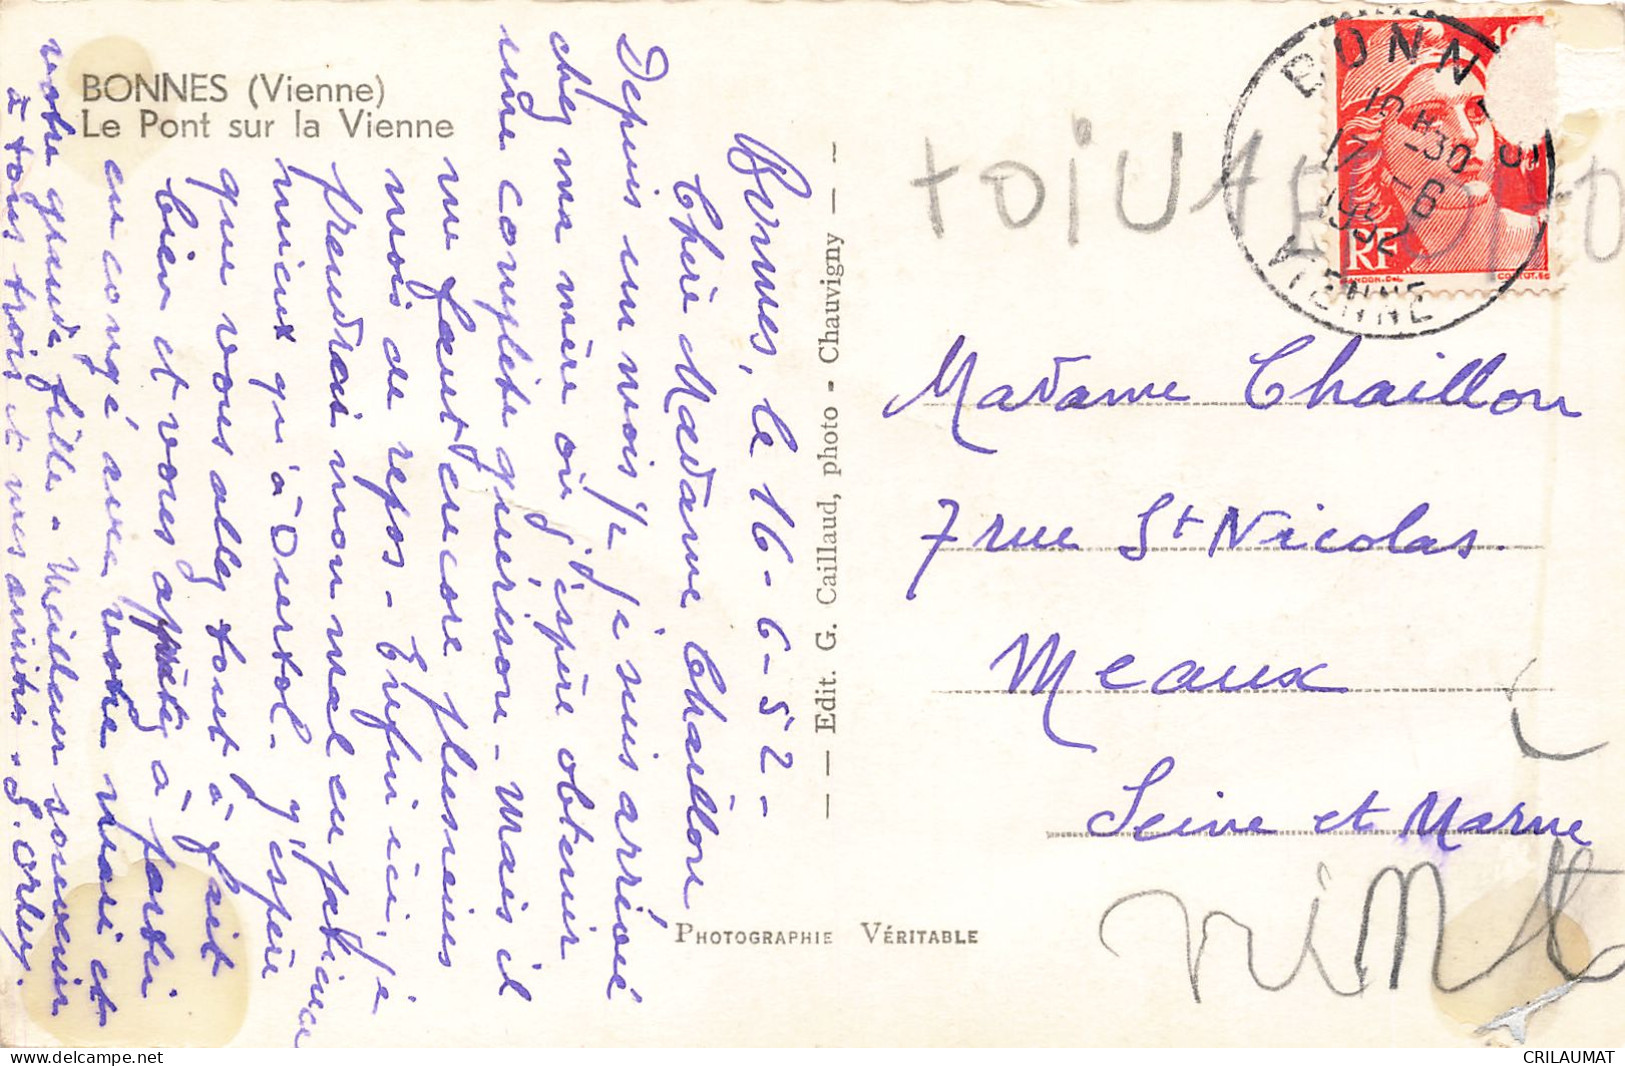 BONNES (Vienne)
Le Pont sur la Vienne
Bonnes, le 16-6-52-
Chère Madame Chaillou
Depuis un mois je je suis arrivé
chez ma mère où j'espère obtenir
une complète guérison - Mais il
me faut encore plusieurs
mois de repos - Enfin ici, je
prendrai mon mal en patience
mieux qu'à Durtol. J'espère
que vous allez tout à fait
bien et vous apprêtez à partir
en congé avec votre mari et
votre grande fille - Meilleur souvenir
à tous trois et mes amitiés.
— — Edit. G. Caillaud, photo - Chauvigny — —
PHOTOGRAPHIE VÉRITABLE
BONNES
10 H 30
17 -6
1952
VIENNE
RF
GANDON. DEL.
Madame Chaillou
7 rue St Nicolas.
Meaux
Seine et Marne
CRILAUMAT
www.delcampe.net